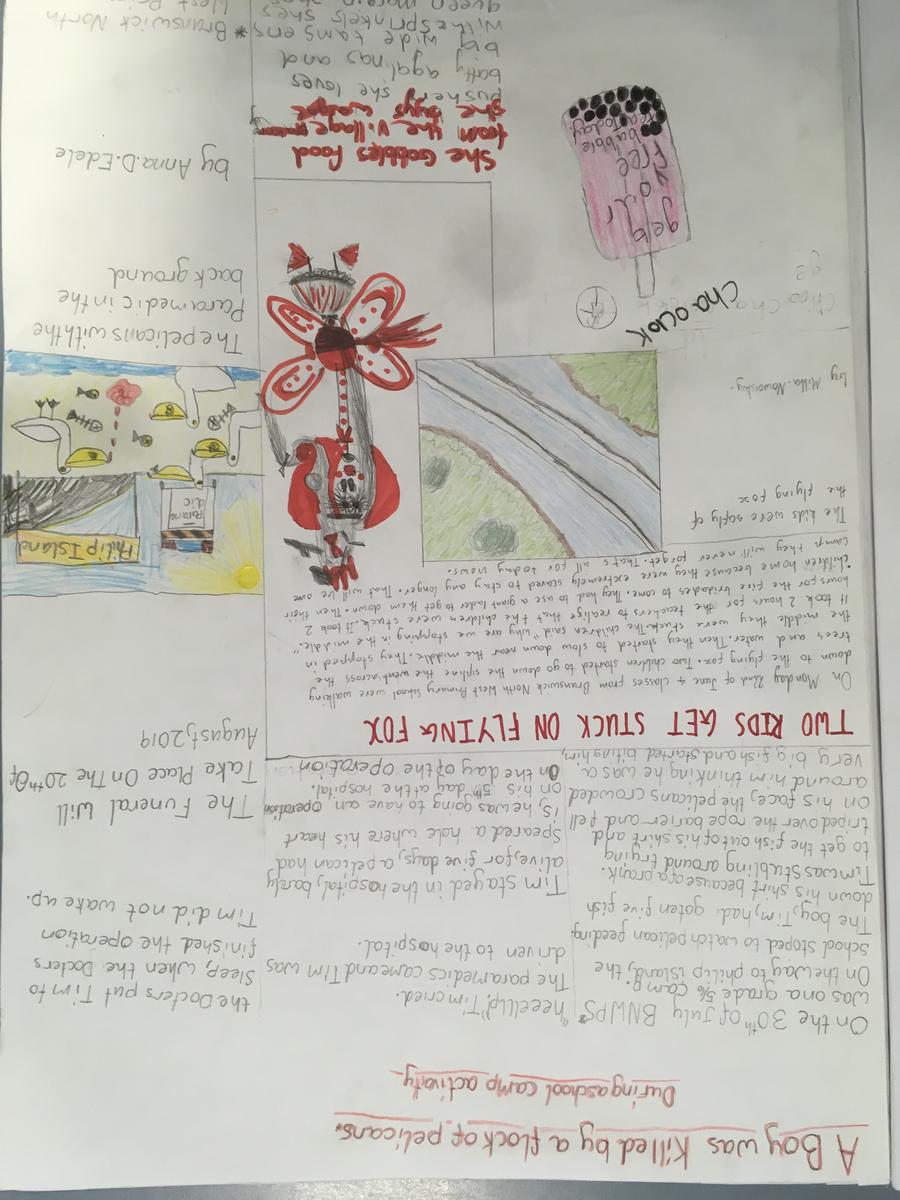 A Boy was Killed by a flock of pelicans.
During a school camp activity.
On the 30th of July BNWPS*
was on a grade 5/6 camp.
On the way to philip island, the
school stoped to watch pelican feeding
The boy, Tim, had goten five fish
down his shirt because of a prank.
Tim was stubling around trying
to get the fish out of his shirt and
triped over the rope barier and fell
on his face, the pelicans crowded
around him thinking he was a
very big fish and started biting him,
"heeellllp" Tim cried.
The paramedics came and Tim was
driven to the hospital.
Tim stayed in the hospital, barely
alive, for five days, a pelican had
Speared a hole where his heart
is, he was going to have an operation
on his 5th day at the hospital.
On the day of the operation
the Docters put Tim to
Sleep, when the Docters
finished the operation
Tim did not wake up.
The Funeral will
Take Place On The 20th Of
August, 2019
Philip Island
Parame
dic
The pelicans with the
Paramedic in the
background
by Anna.D.Edele
* Brunswick North
TWO KIDS GET STUCK ON FLYING FOX
On Monday 22nd of June 4 classes from Brunswick North West Primary school were walking
down to the flying fox. Two children started to go down the zipline the went across the
trees and water. Then they started to slow down near the middle. They stopped in
the middle they were stuck. The children said "why are we stopping in the middle."
It took 2 hours for the teachers to realize that the children were stuck. It took 2
hours for the fire bridades to come. They had to use a giant lader to get them down. Then their
children home because they were extremely starved to stay any longer. That will be one
camp they will never forget. That's all for today news.
The kids were safly of
the flying fox
by Milla. Nowaisky.
Chaouok
get
your
free
bubble
tea today.
She Gobbles Food
from the village
she
pusher she loves
batty and
big wide
with sprinkels shes
queen